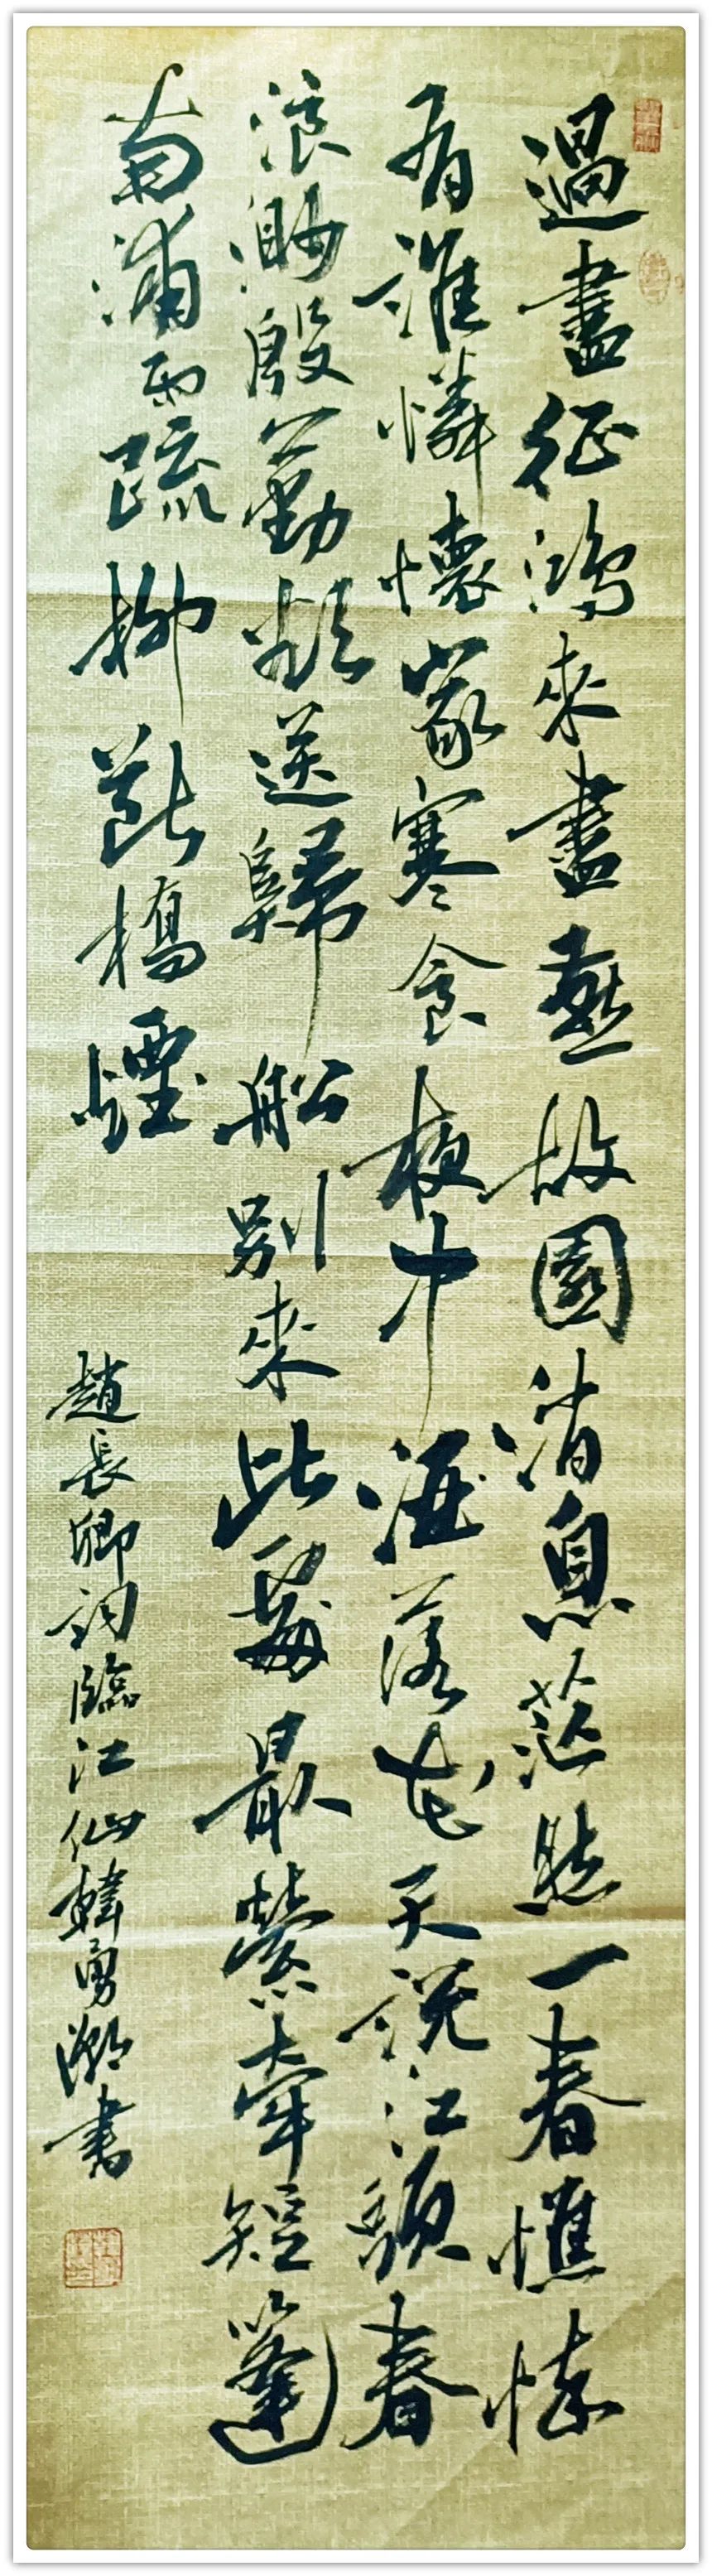 過盡征鴻來盡燕故園消息茫然一春憔悴
有誰憐懷家寒食夜中酒落花天說江頭春
浪渺殷勤欲送歸船別來此處最縈牽短篷
南浦雨疏柳斷橋煙
趙長卿詞臨江仙韓勇書